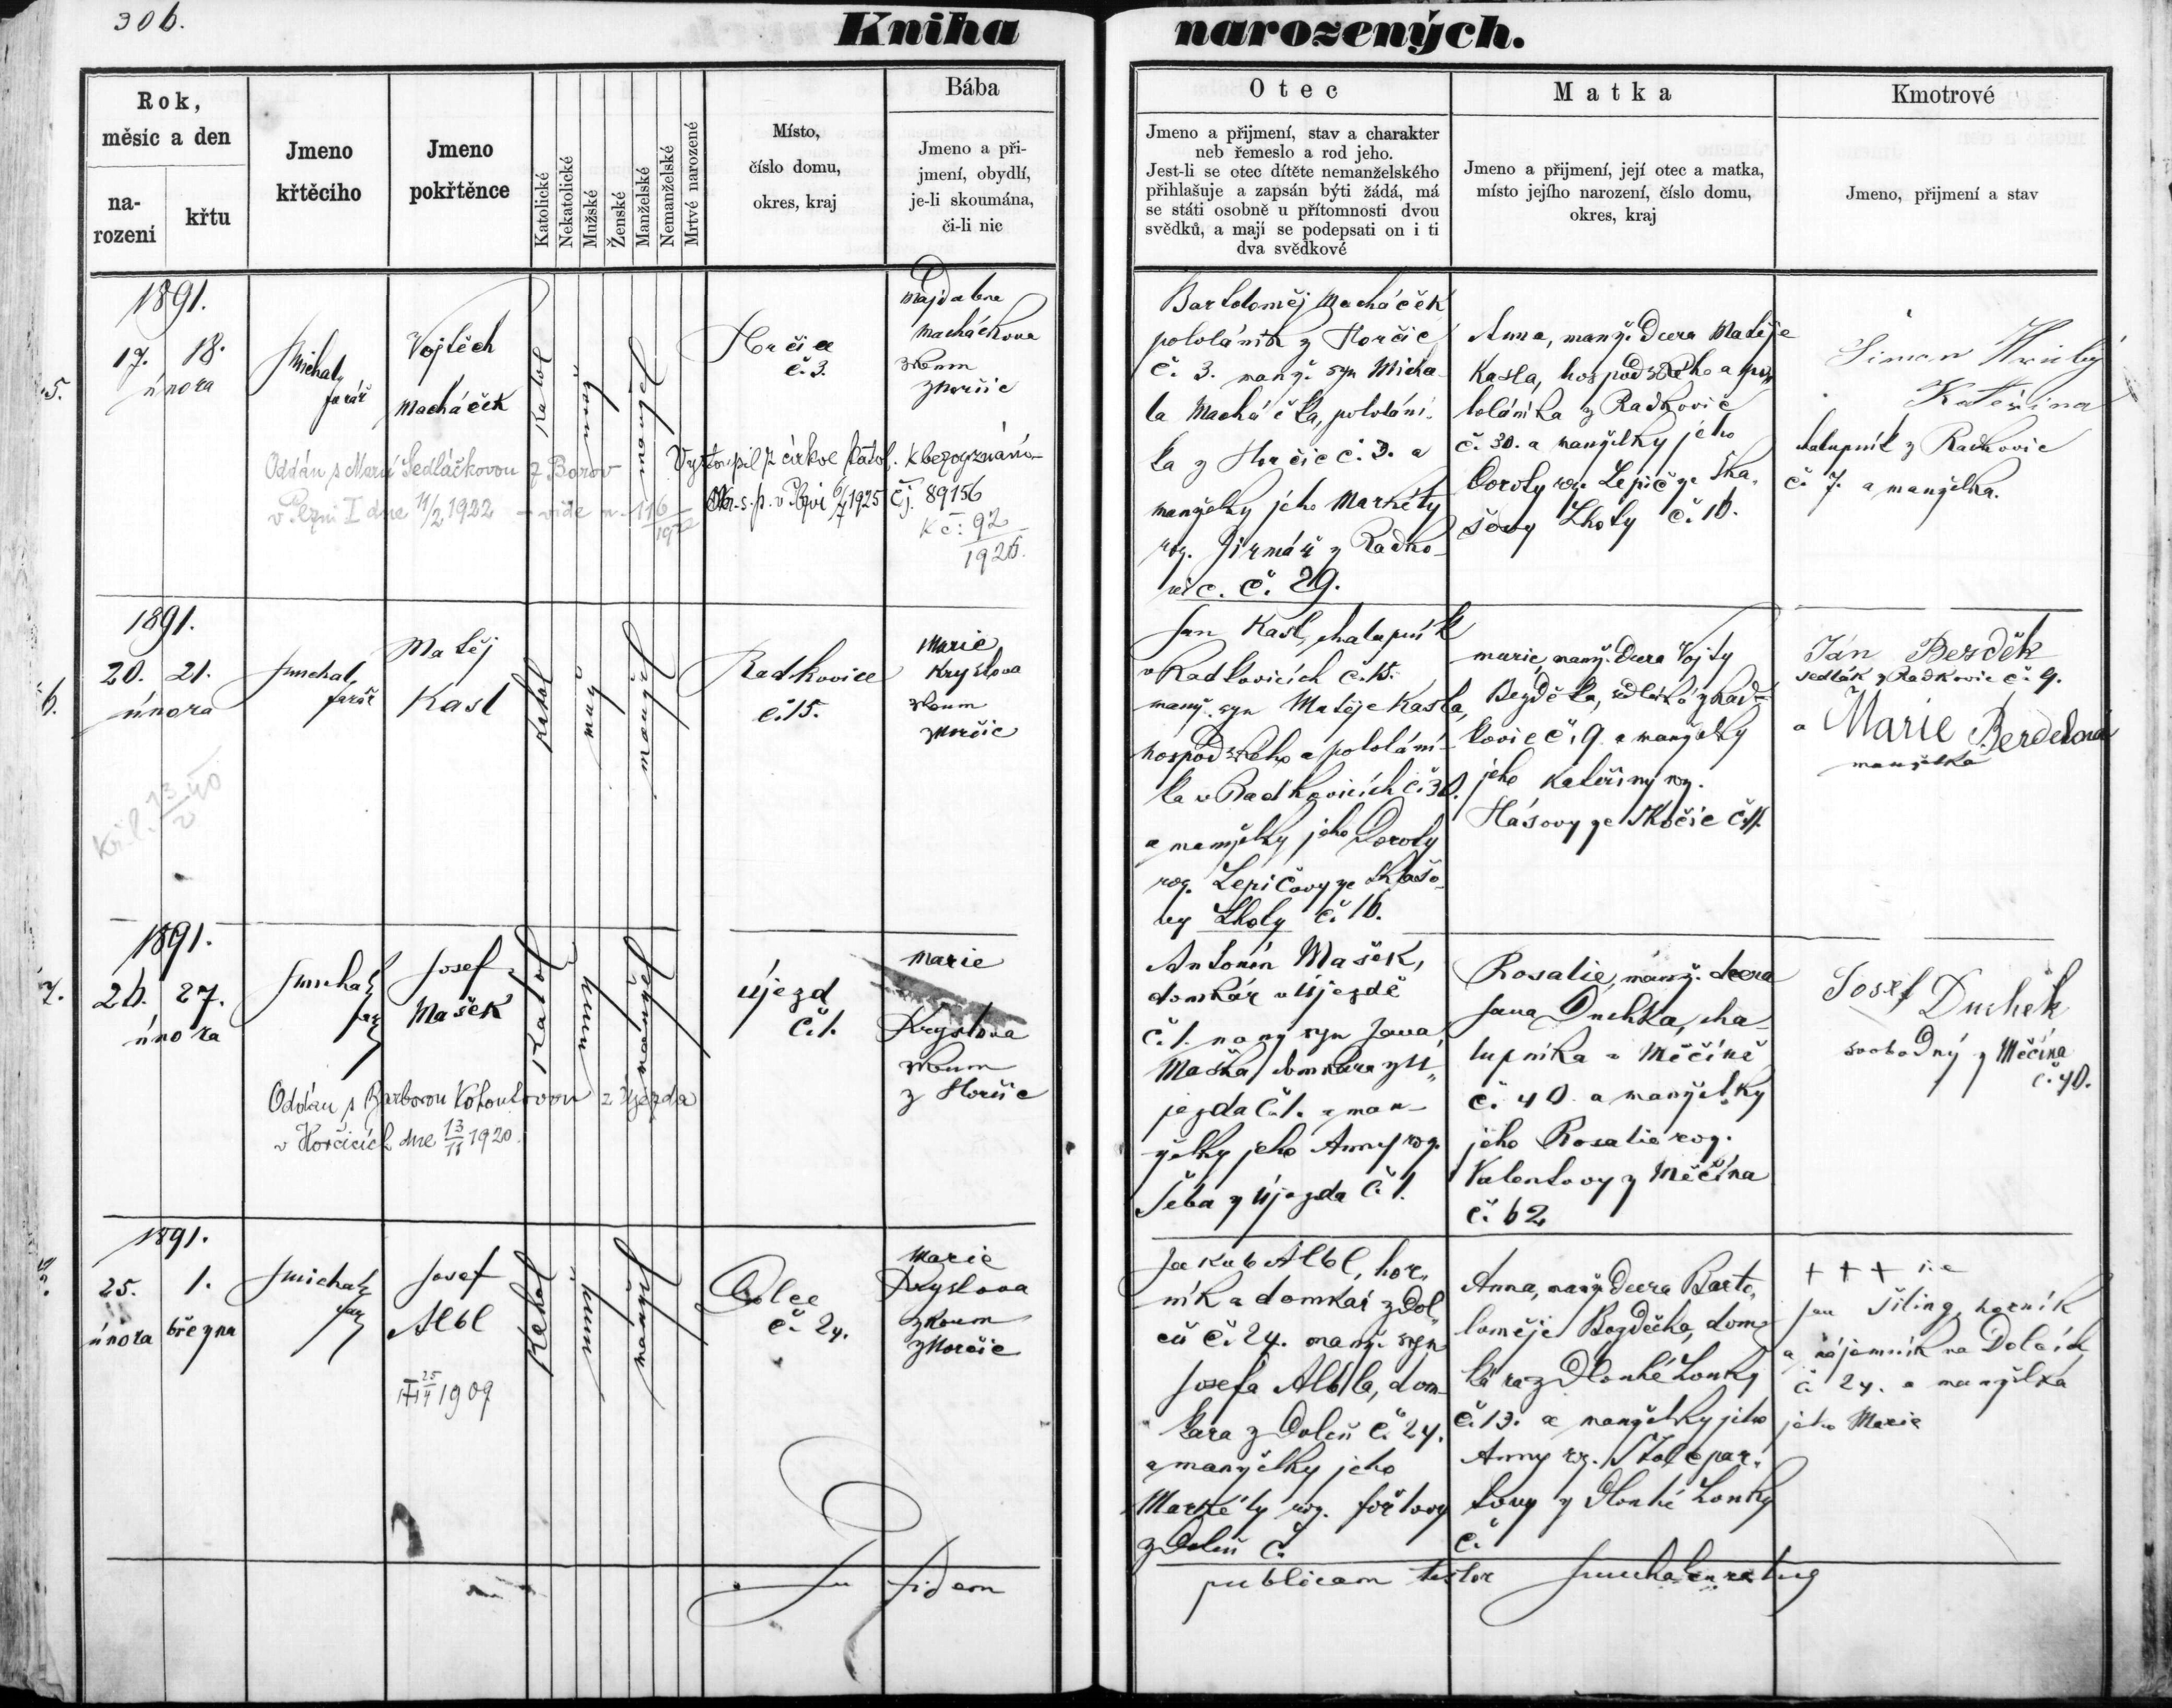 306.
Kniha narozených.
Rok,
měsíc a den
na-
rození
křtu
Jmeno
křtěcího
Jmeno
pokřtěnce
Katolické
Nekatolické
Mužské
Ženské
Manželské
Nemanželské
Mrtvé narozené
Místo,
číslo domu,
okres, kraj
Bába
Jmeno a při-
jmení, obydlí,
je-li skoumána,
či-li nic
Otec
Jmeno a přijmení, stav a charakter
neb řemeslo a rod jeho.
Jest-li se otec dítěte nemanželského
přihlašuje a zapsán býti žádá, má
se státi osobně u přítomnosti dvou
svědků, a mají se podepsati on i ti
dva svědkové
Matka
Jmeno a přijmení, její otec a matka,
místo jejího narození, číslo domu,
okres, kraj
Kmotrové
Jmeno, přijmení a stav
5.
1891.
17. 18.
února
Smichal
farář
Vojtěch
Macháček
Katol
manžel
Horčice
č. 3.
Majdalena
Macháčkova
zkoum
z Horčic
Oddán s Marií Sedláčkovou z Borov
v Plzni I dne 11/2 1922 – vide n. 116/1922
Vystoupil z církve katol. k bezvyznání
Okr. s. p. v Plzni 6/7 1925 čj. 89156
K č: 92/1925.
Bartoloměj Macháček
pololáník z Horčic
č. 3. manž. syn Micha-
la Macháčka, pololání-
ka z Horčic č. 3. a
manželky jeho Markéty
roz. Jirmář z Radko-
vic. č. 29.
Anna, manž. dcera Matěje
Kasla, hospodského a po-
lolánika z Radkovic
č. 30. a manželky jeho
Doroty roz. Lepič ze Ska-
šovy Lhoty č. 16.
Šimon Hrubý
Kateřina
chalupník z Radkovic
č. 7. a manželka.
6.
1891.
20. 21.
února
Smichal,
farář
Matěj
Kasl
Katol
manžel
Radkovice
č. 15.
Marie
Kryslova
zkoum
z Horčic
13/2 40
Jan Kasl, chalupník
v Radkovicích č. 15.
manž. syn Matěje Kasla,
hospodského a pololání-
ka v Radkovicích č. 30.
a manželky jeho Doroty
roz. Lepičovy ze Skašo-
vy Lhoty č. 16.
Marie, manž. dcera Vojty
Bezděka, sedláka z Rad-
kovic č. 9. a manželky
jeho Kateřiny roz.
Hásovy ze Skočic č. 11.
Ján Bezděk
sedlák z Radkovic č. 9.
a Marie Berdekova
manželka
7.
1891.
26. 27.
února
Smichal
far
Josef
Mašek
Katol
manžel
Újezd
č. 1.
Marie
Kryslova
zkoum
z Horčic
Oddán s Barborou Kohoutovou z Újezda
v Horčicích dne 13/11 1920.
Antonín Mašek,
domkár v Újezdě
č. 1. manž syn Jana
Maška, domkára z Ú-
jezda č. 1. a man-
želky jeho Anny roz.
Šeba z Újezda č. 1.
Rosalie, manž. dcera
Jana Duchka, cha-
lupníka v Měčíně
č. 40. a manželky
jeho Rosalie roz.
Valentovy z Měčína
č. 62
Josef Duchek
svobodný z Měčína
č. 40.
1891.
25. 1.
února března
Smichal
far
Josef
Albl
25/4 1909
Katol
manžel
Dolce
č. 24.
Marie
Kryslova
zkoum
z Horčic
Jakub Albl, hor-
ník a domkář z Dol-
ců č. 24. manž. syn
Josefa Albla, dom-
kara z Dolců č. 24.
a manželky jeho
Markéty roz. Fořtovy
z Dolců č.
Anna, manž. dcera Barto-
loměje Bezděka, dom-
kára z Dlouhé Louky
č. 13. a manželky jeho
Anny roz. Stolepar-
tovy z Dlouhé Louky
č.
+ + + i.e
Jan Šiling, horník
a nájemník na Dolcích
č. 24. a manželka
jeho Marie
In fidem
publicam testor Smichal curatus